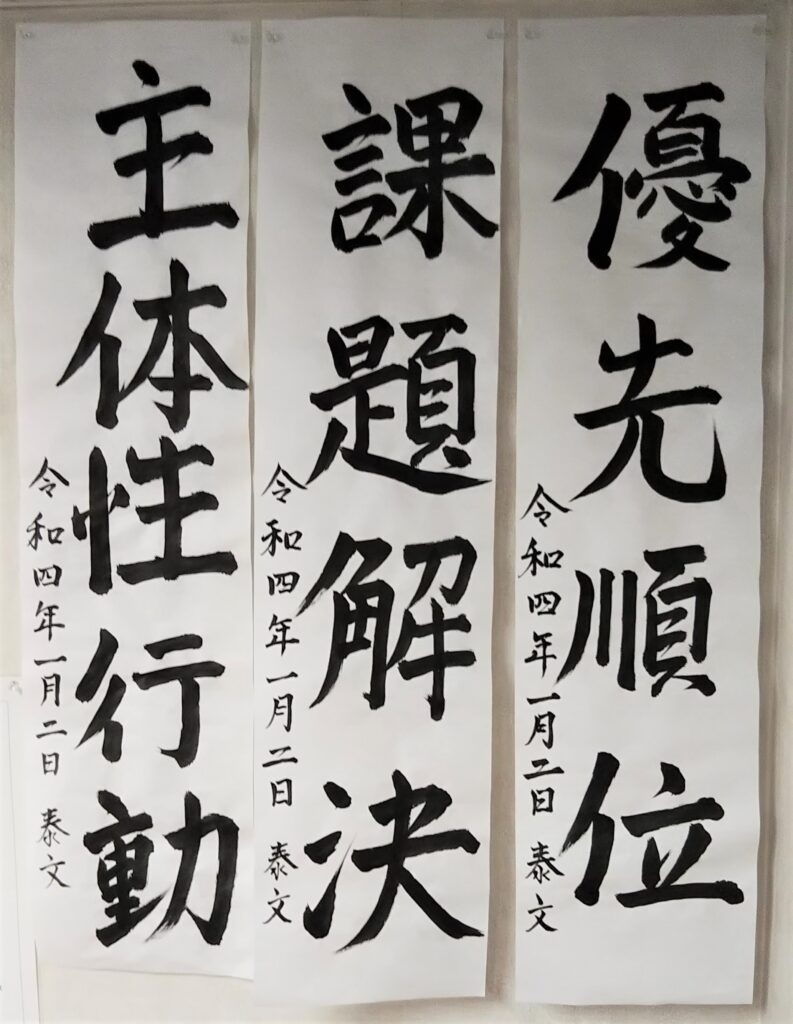 優先順位
令和四年一月二日 泰文
課題解決
令和四年一月二日 泰文
主体性行動
令和四年一月二日 泰文